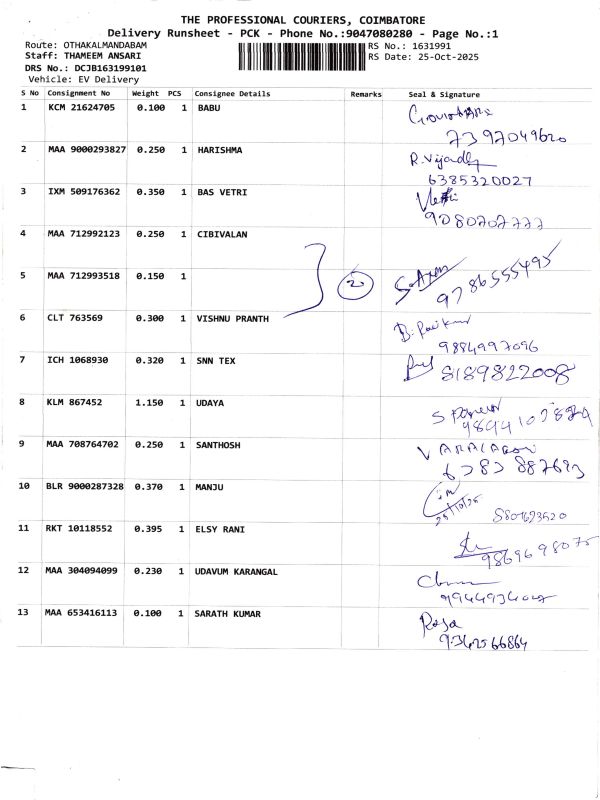 THE PROFESSIONAL COURIERS, COIMBATORE
Delivery Runsheet - PCK - Phone No.:9047080280 - Page No.:1
Route: OTHAKALMANDABAM RS No.: 1631991
Staff: THAMEEM ANSARI RS Date: 25-Oct-2025
DRS No.: DCJB163199101
Vehicle: EV Delivery
S No Consignment No Weight PCS Consignee Details Remarks Seal & Signature
1 KCM 21624705 0.100 1 BABU
7397049620
2 MAA 9000293827 0.250 1 HARISHMA R. Vijay
6385320027
3 IXM 509176362 0.350 1 BAS VETRI
9080707777
4 MAA 712992123 0.250 1 CIBIVALAN
5 MAA 712993518 0.150 1 2
9786555495
6 CLT 763569 0.300 1 VISHNU PRANTH
9884997096
7 ICH 1068930 0.320 1 SNN TEX 8189822008
8 KLM 867452 1.150 1 UDAYA
9 MAA 708764702 0.250 1 SANTHOSH
10 BLR 9000287328 0.370 1 MANJU
25/10/25
11 RKT 10118552 0.395 1 ELSY RANI
9869698075
12 MAA 304094099 0.230 1 UDAVUM KARANGAL
13 MAA 653416113 0.100 1 SARATH KUMAR Roja
9342566864